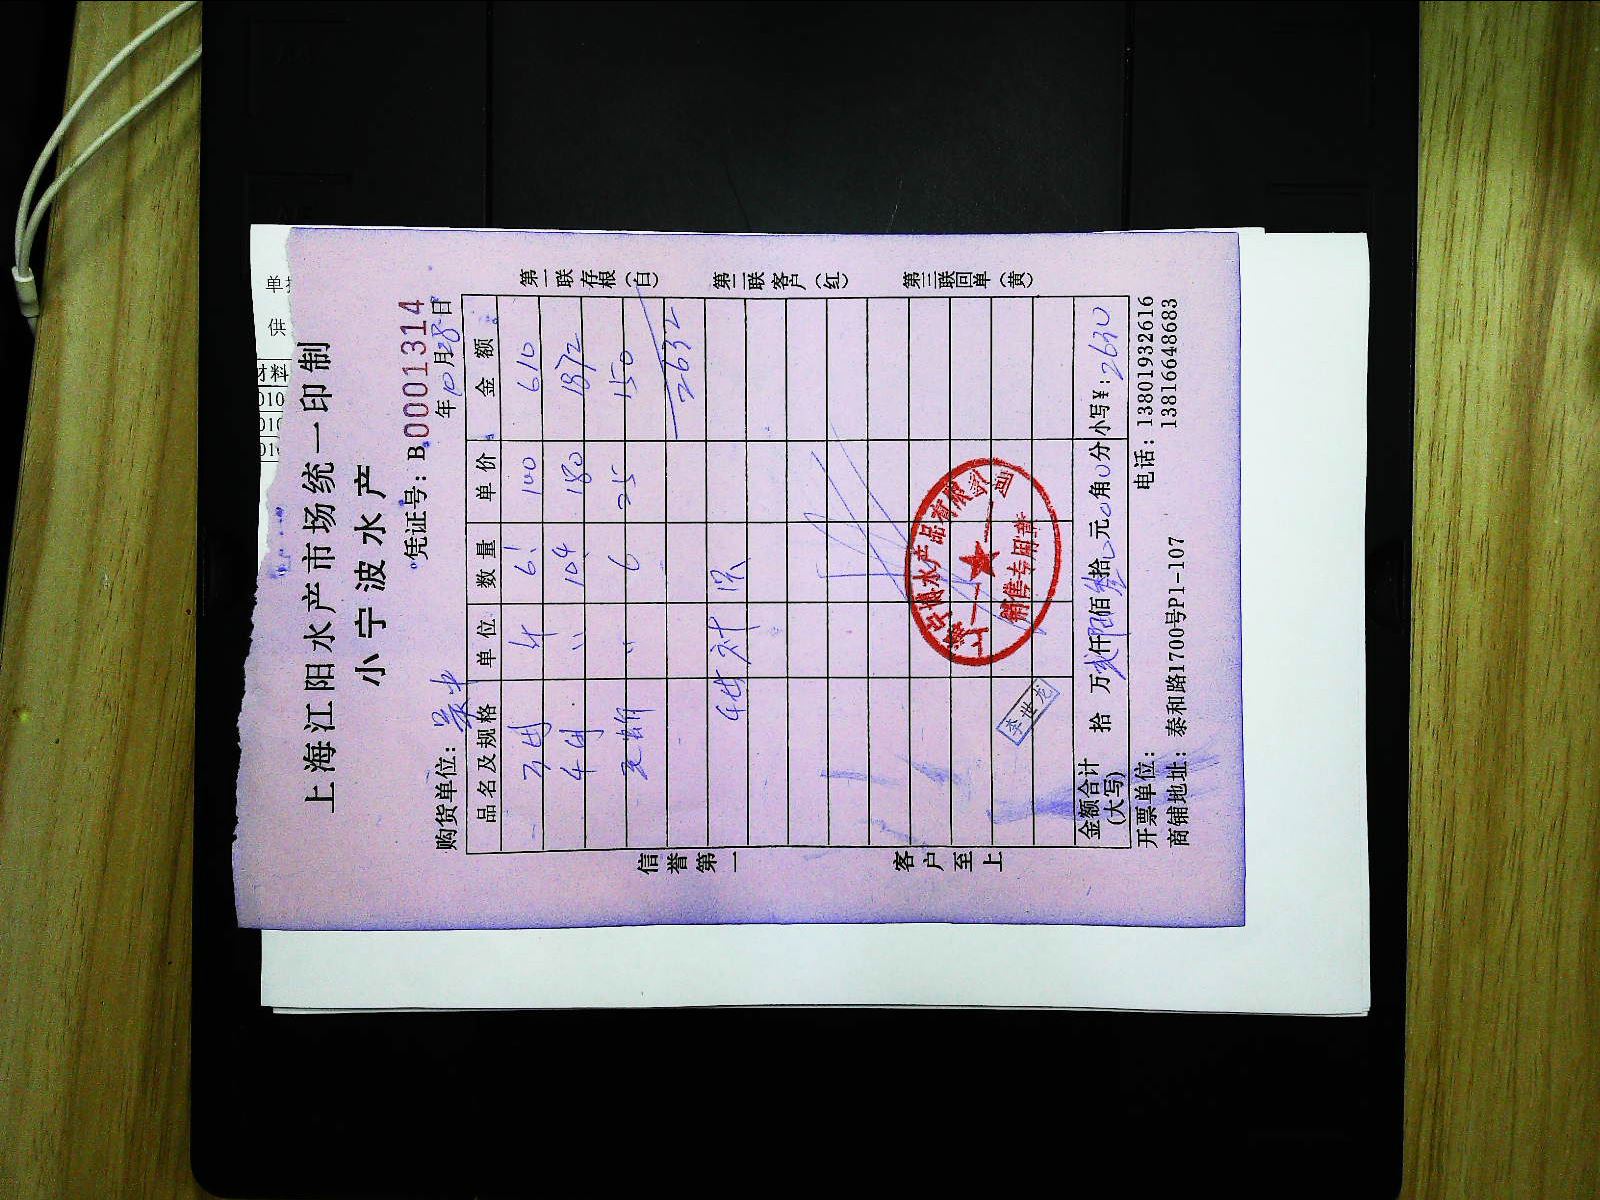 上海江阳水产市场统一印制
小宁波水产
凭证号：B00001314
购货单位：
年10月28日
品名及规格 单位 数量 单价 金额
6.1 100 610
10.4 180 1872
6 25 150
2632
第一联存根（白）
第二联客户（红）
第三联回单（黄）
信誉第一
客户至上
销售专用章
李世龙
金额合计（大写） 拾 万 仟 佰 拾 元 0 角 0 分 小写¥：2630
开票单位：
电话：13801932616
13816648683
商铺地址：泰和路1700号P1-107
单
供
材料
010
010
010